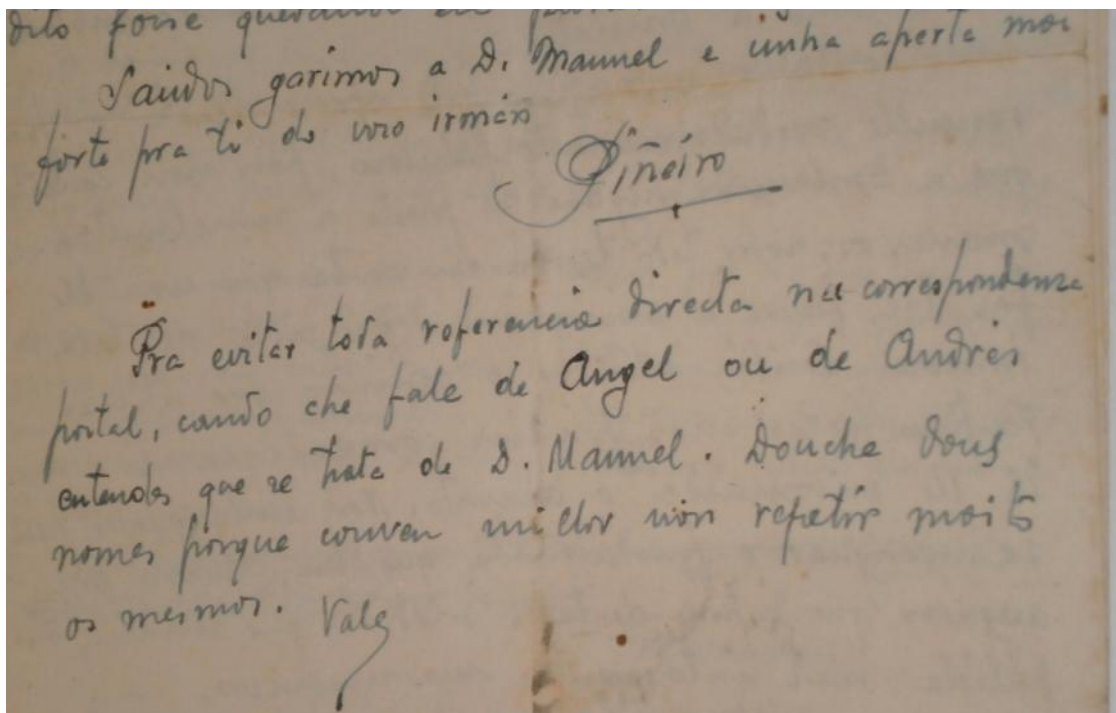 dito forse quedando en
Saúdos garimos a D. Manuel e unha aperta moi
forte pra ti do voso irmán
Piñeiro
Pra evitar toda referencia directa na correspondenza
postal, cando che fale de Angel ou de Andrés
entendes que se trata de D. Manuel. Douche dous
nomes porque conven millor non repetir moito
os mesmos. Vale